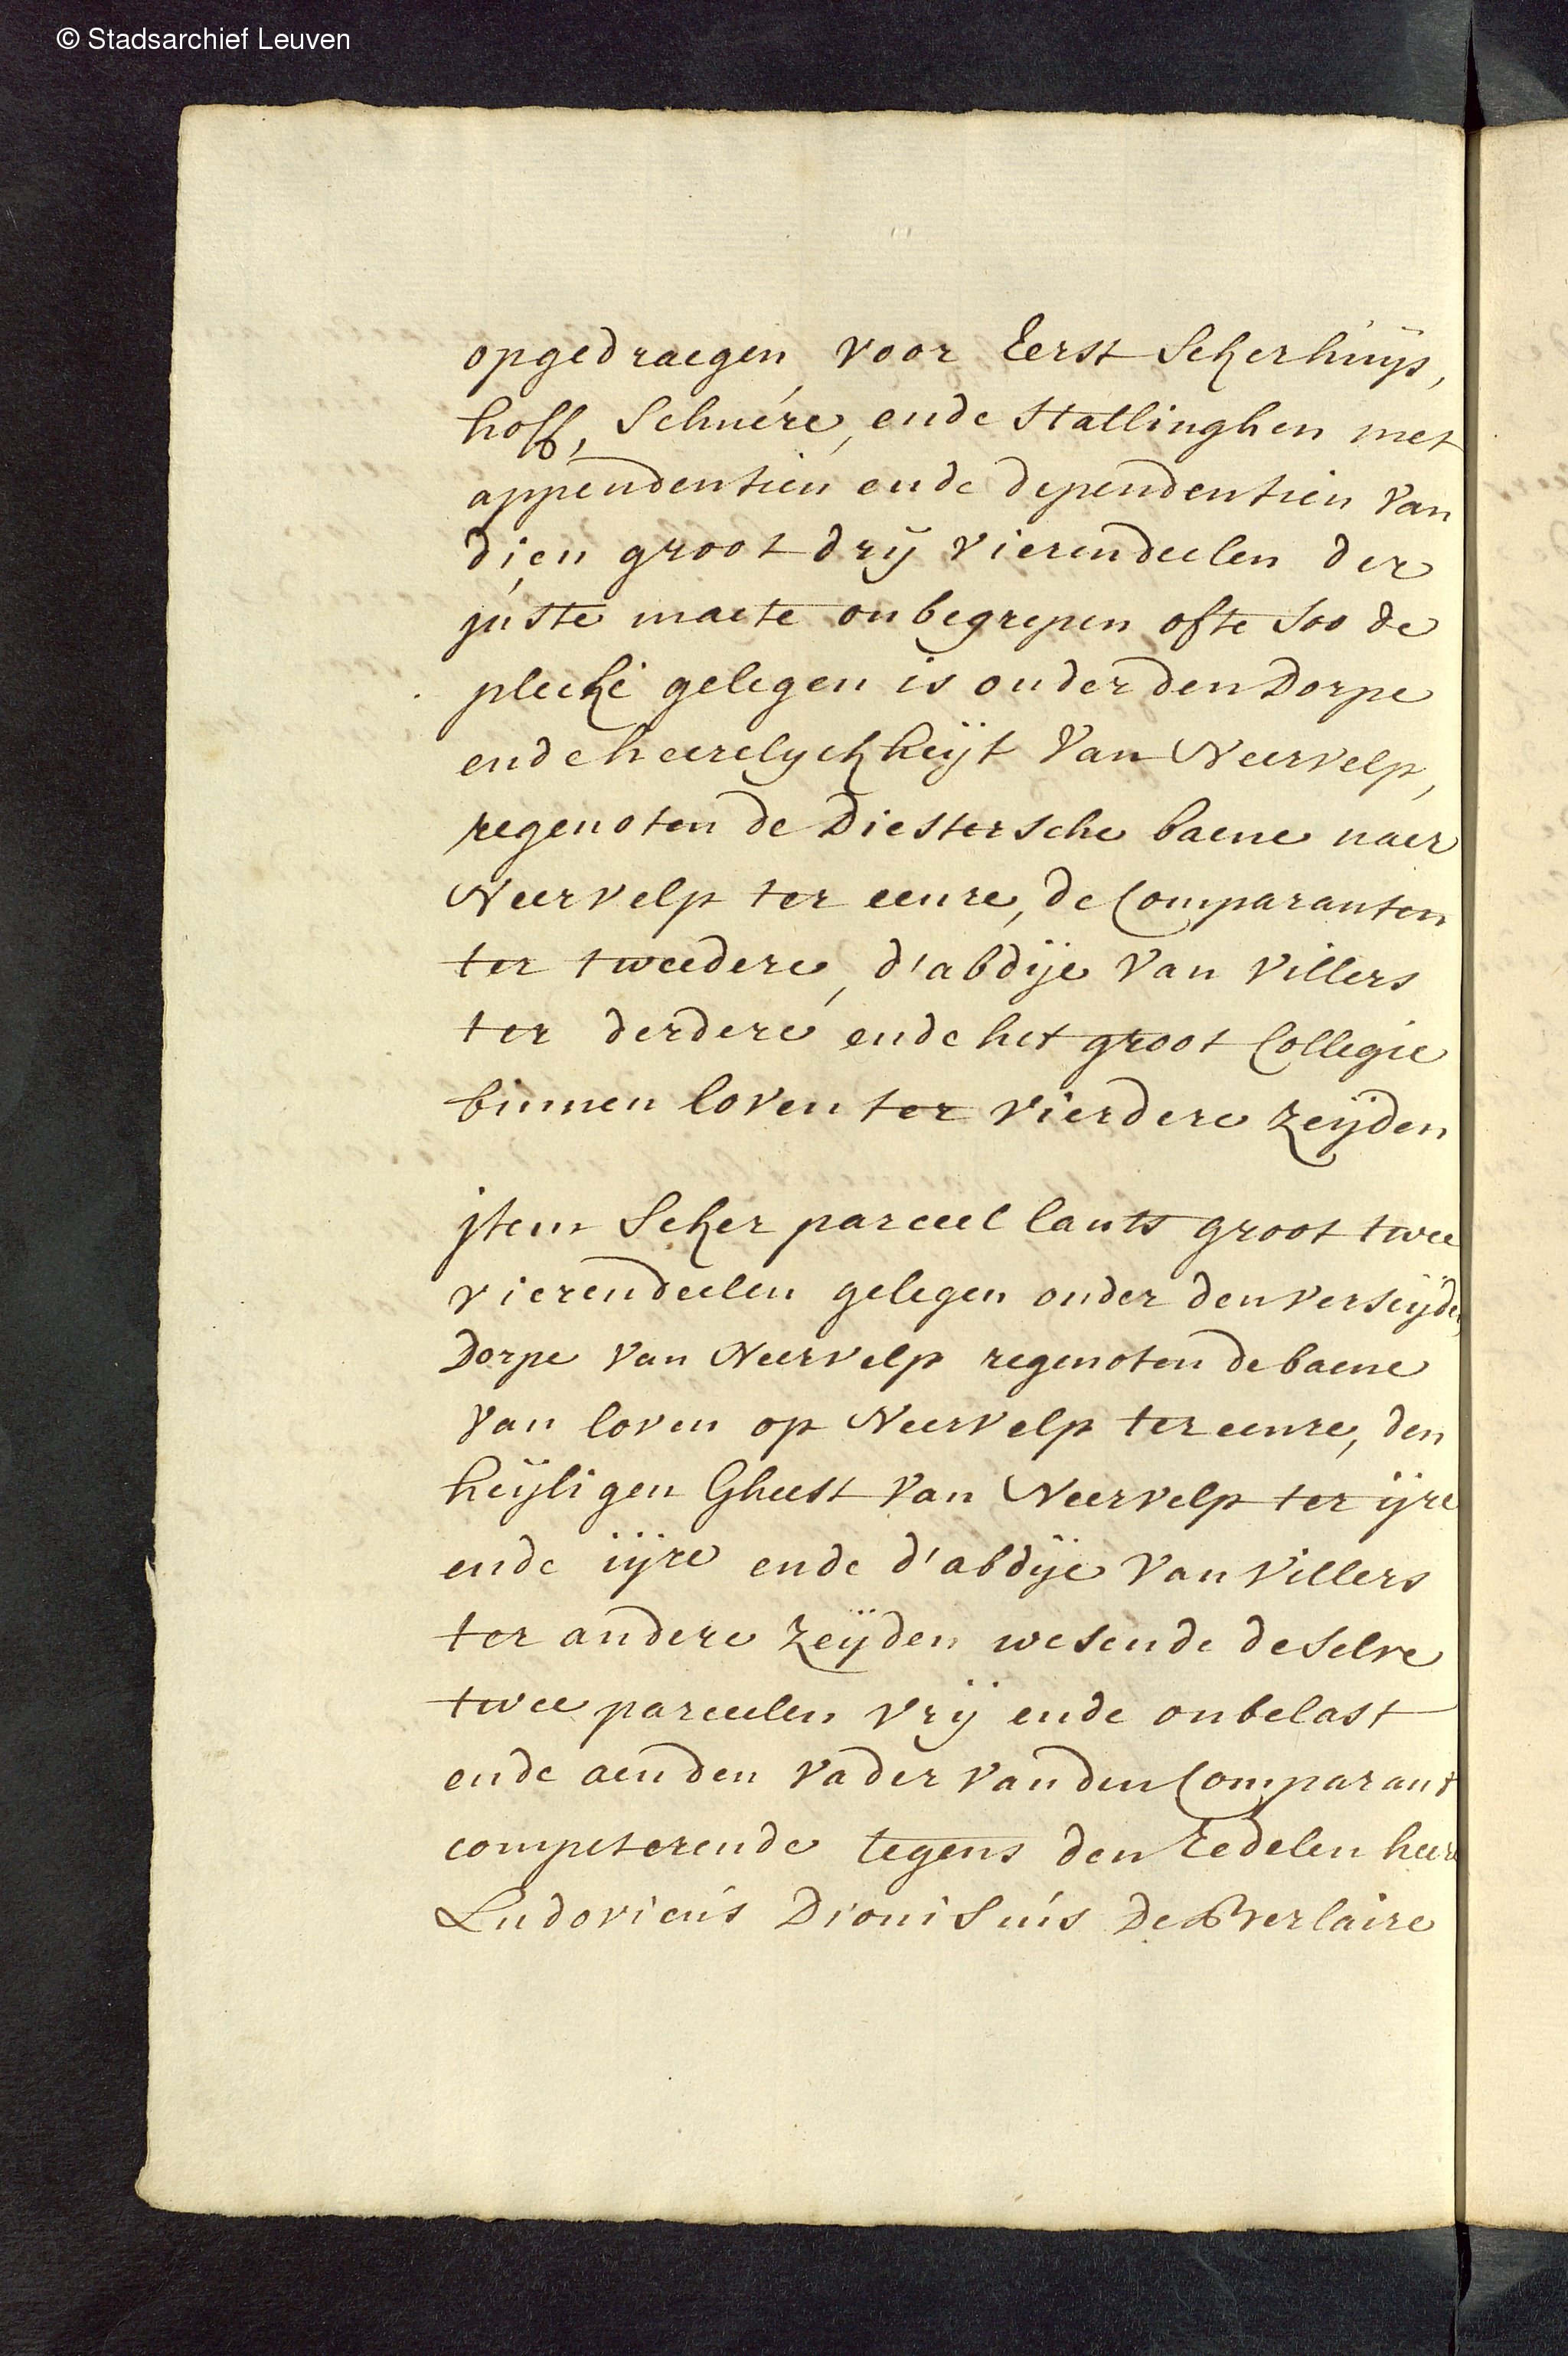 © Stadsarchief Leuven
opgedraegen, voor Eerst Sekerhuijs,
hoff, Schuere, ende Stallinghen met
appendentien ende dependentien van
dien groot drij vierendeelen der
juste maete onbegrepen ofte soo de
plecke gelegen is onder den Dorpe
ende heerelyckheijt van Neervelp,
regenoten de Diestersche baene naer
Neervelp ter eenre, de Comparanten
ter tweedere, d'abdije van Villers
ter derdere ende het groot Collegie
binnen loven ter vierdere zeijden
jtem Seker parceel lants groot twee
vierendeelen gelegen onder den verseijden
Dorpe van Neervelp regenoten de baene
van loven op Neervelp ter eenre, den
heijligen Gheest van Neervelp ter ijre
ende iijre ende d'abdije van Villers
ter andere zeijden wesende deselve
twee parceelen vrij ende onbelast
ende aen den vader van den Comparant
competerende tegens den Eedelen heere
Ludovicus Dionisius De Berlaire